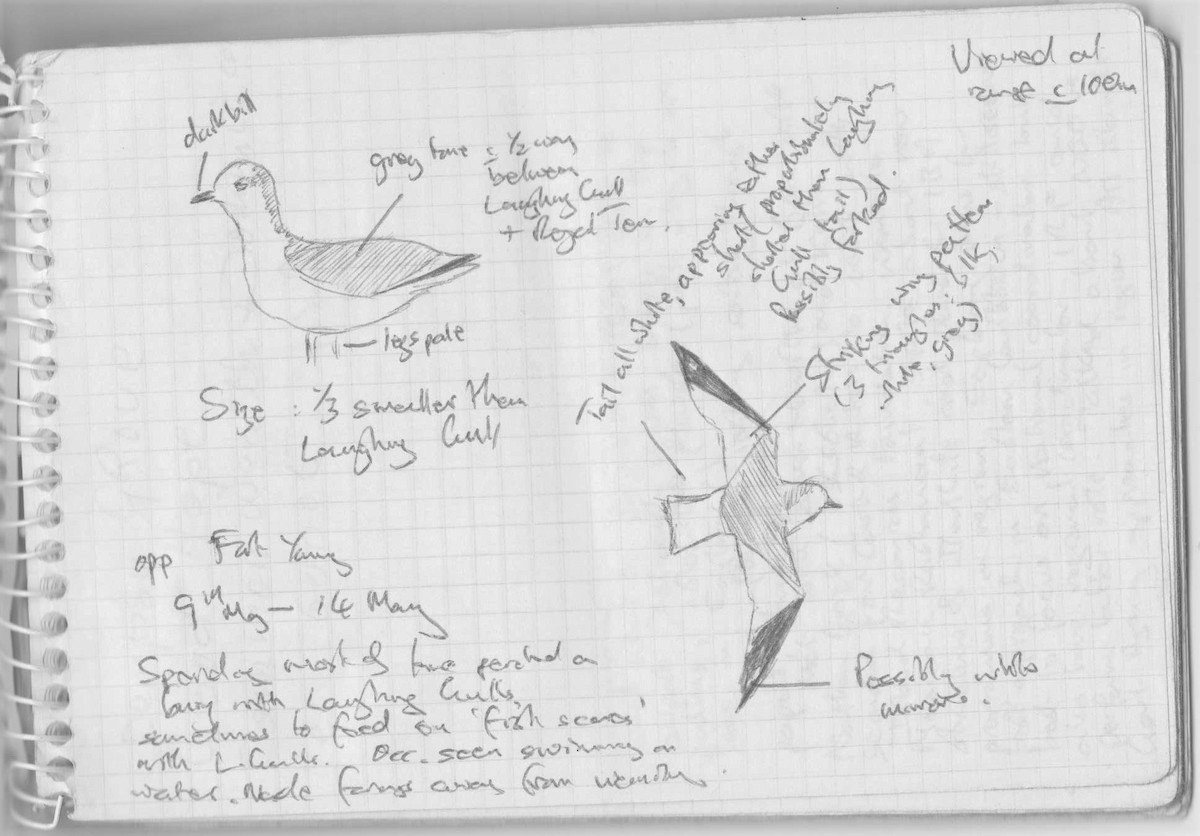 Viewed at
range ≤ 100m
dark bill
grey tone ≤ ½ way
between
Laughing Gull
+ Royal Tern.
legs pale
Size : ⅓ smaller than
Laughing Gull
Tail all white, appearing rather
short, proportionately
shorter than Laughing
Gull tail)
Possibly forked.
Striking wing pattern
(3 triangles: blk,
white, grey)
Possibly white
mirrors.
opp Fort Young
9th May — 14 May
Spending most of time perched on
buoy with Laughing Gulls,
sometimes to feed on 'fish scraps'
with L. Gulls. Occ. seen swimming on
water. Made forays away from vicinity.